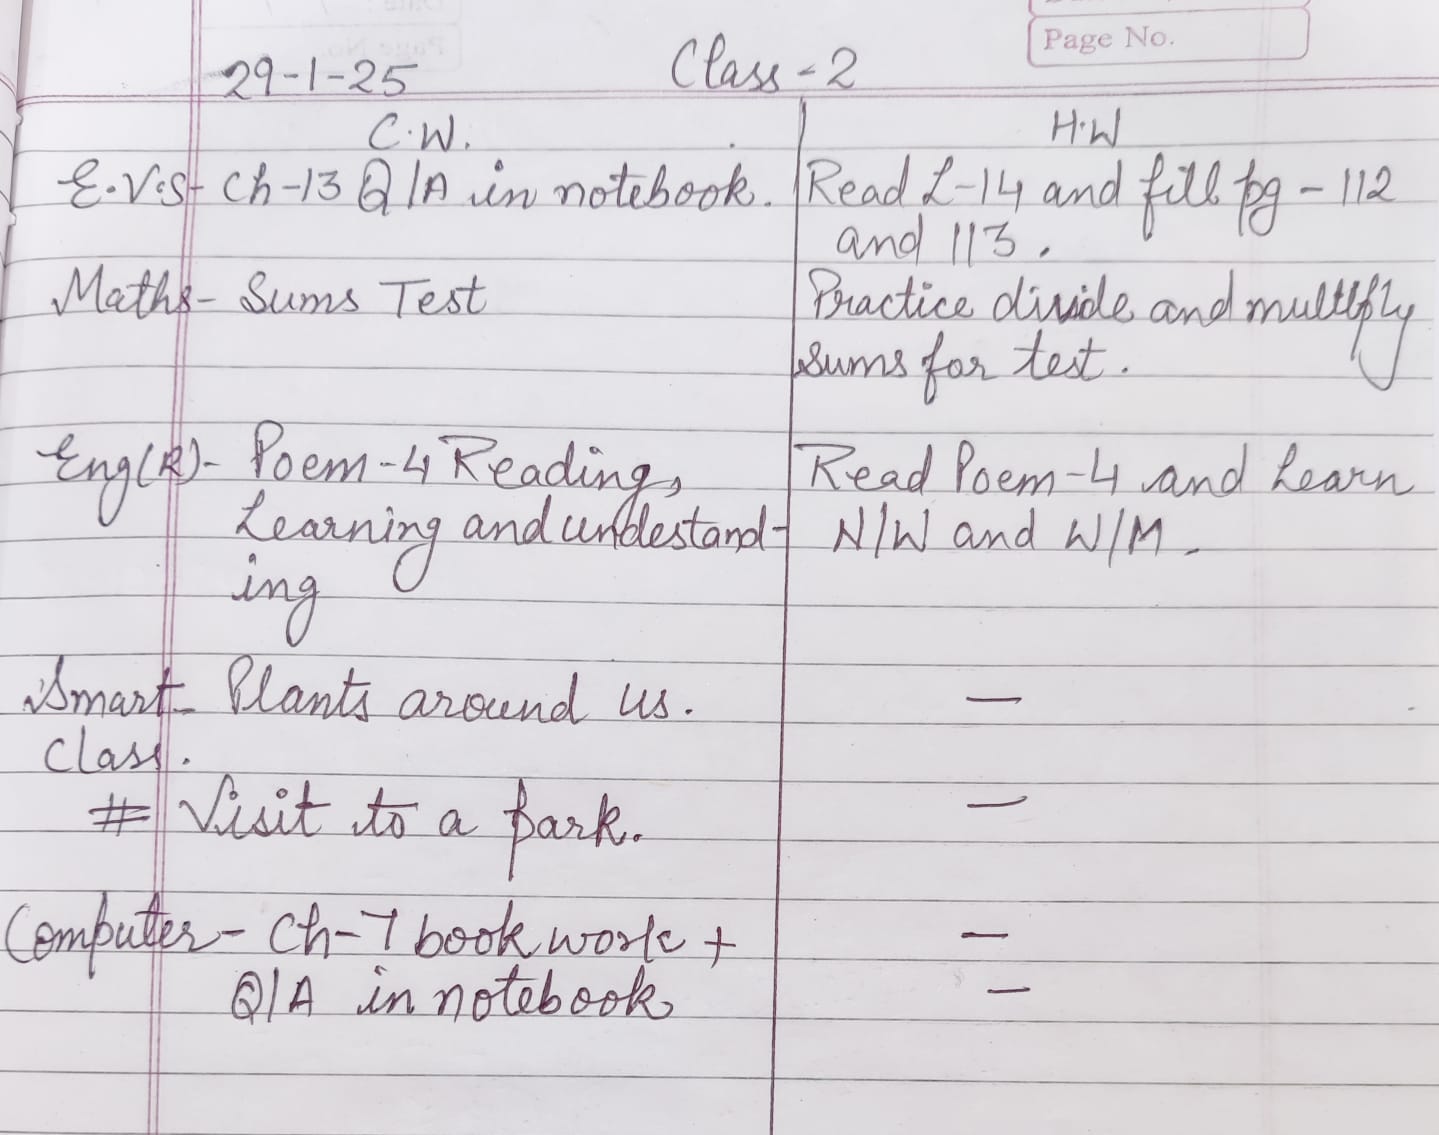 Page No.
29-1-25 Class - 2
C.W. H.W
E.V.S- Ch-13 Q/A in notebook. Read L-14 and fill pg - 112
and 113.
Maths- Sums Test Practice divide and multiply
sums for test.
Eng(R)- Poem-4 Reading, Read Poem-4 and Learn
Learning and undestand- N/W and W/M.
ing
Smart- Plants around us. —
Class.
# Visit to a park. —
Computer- Ch-7 book work + —
Q/A in notebook —